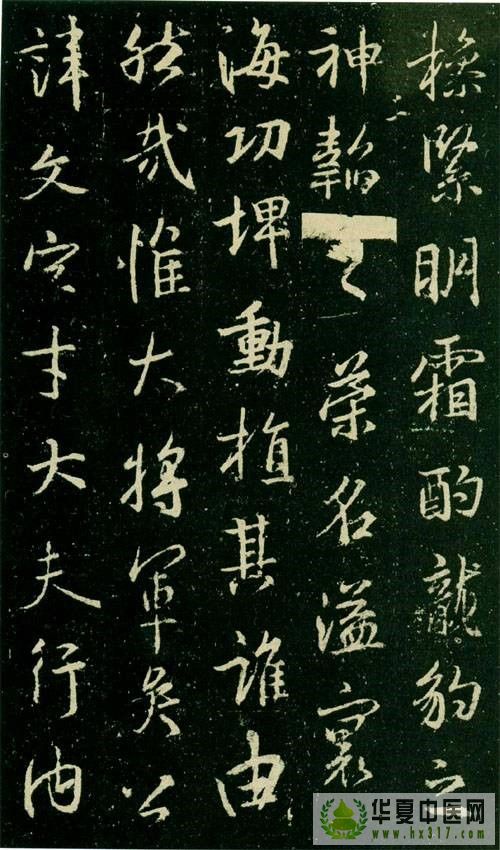 操緊明霜酌龍豹之
神韜之榮名溢寰
海功埤動植其誰由
然哉惟大將軍矣公
諱文字才大夫行内
二
华夏中医网
www.hx317.com